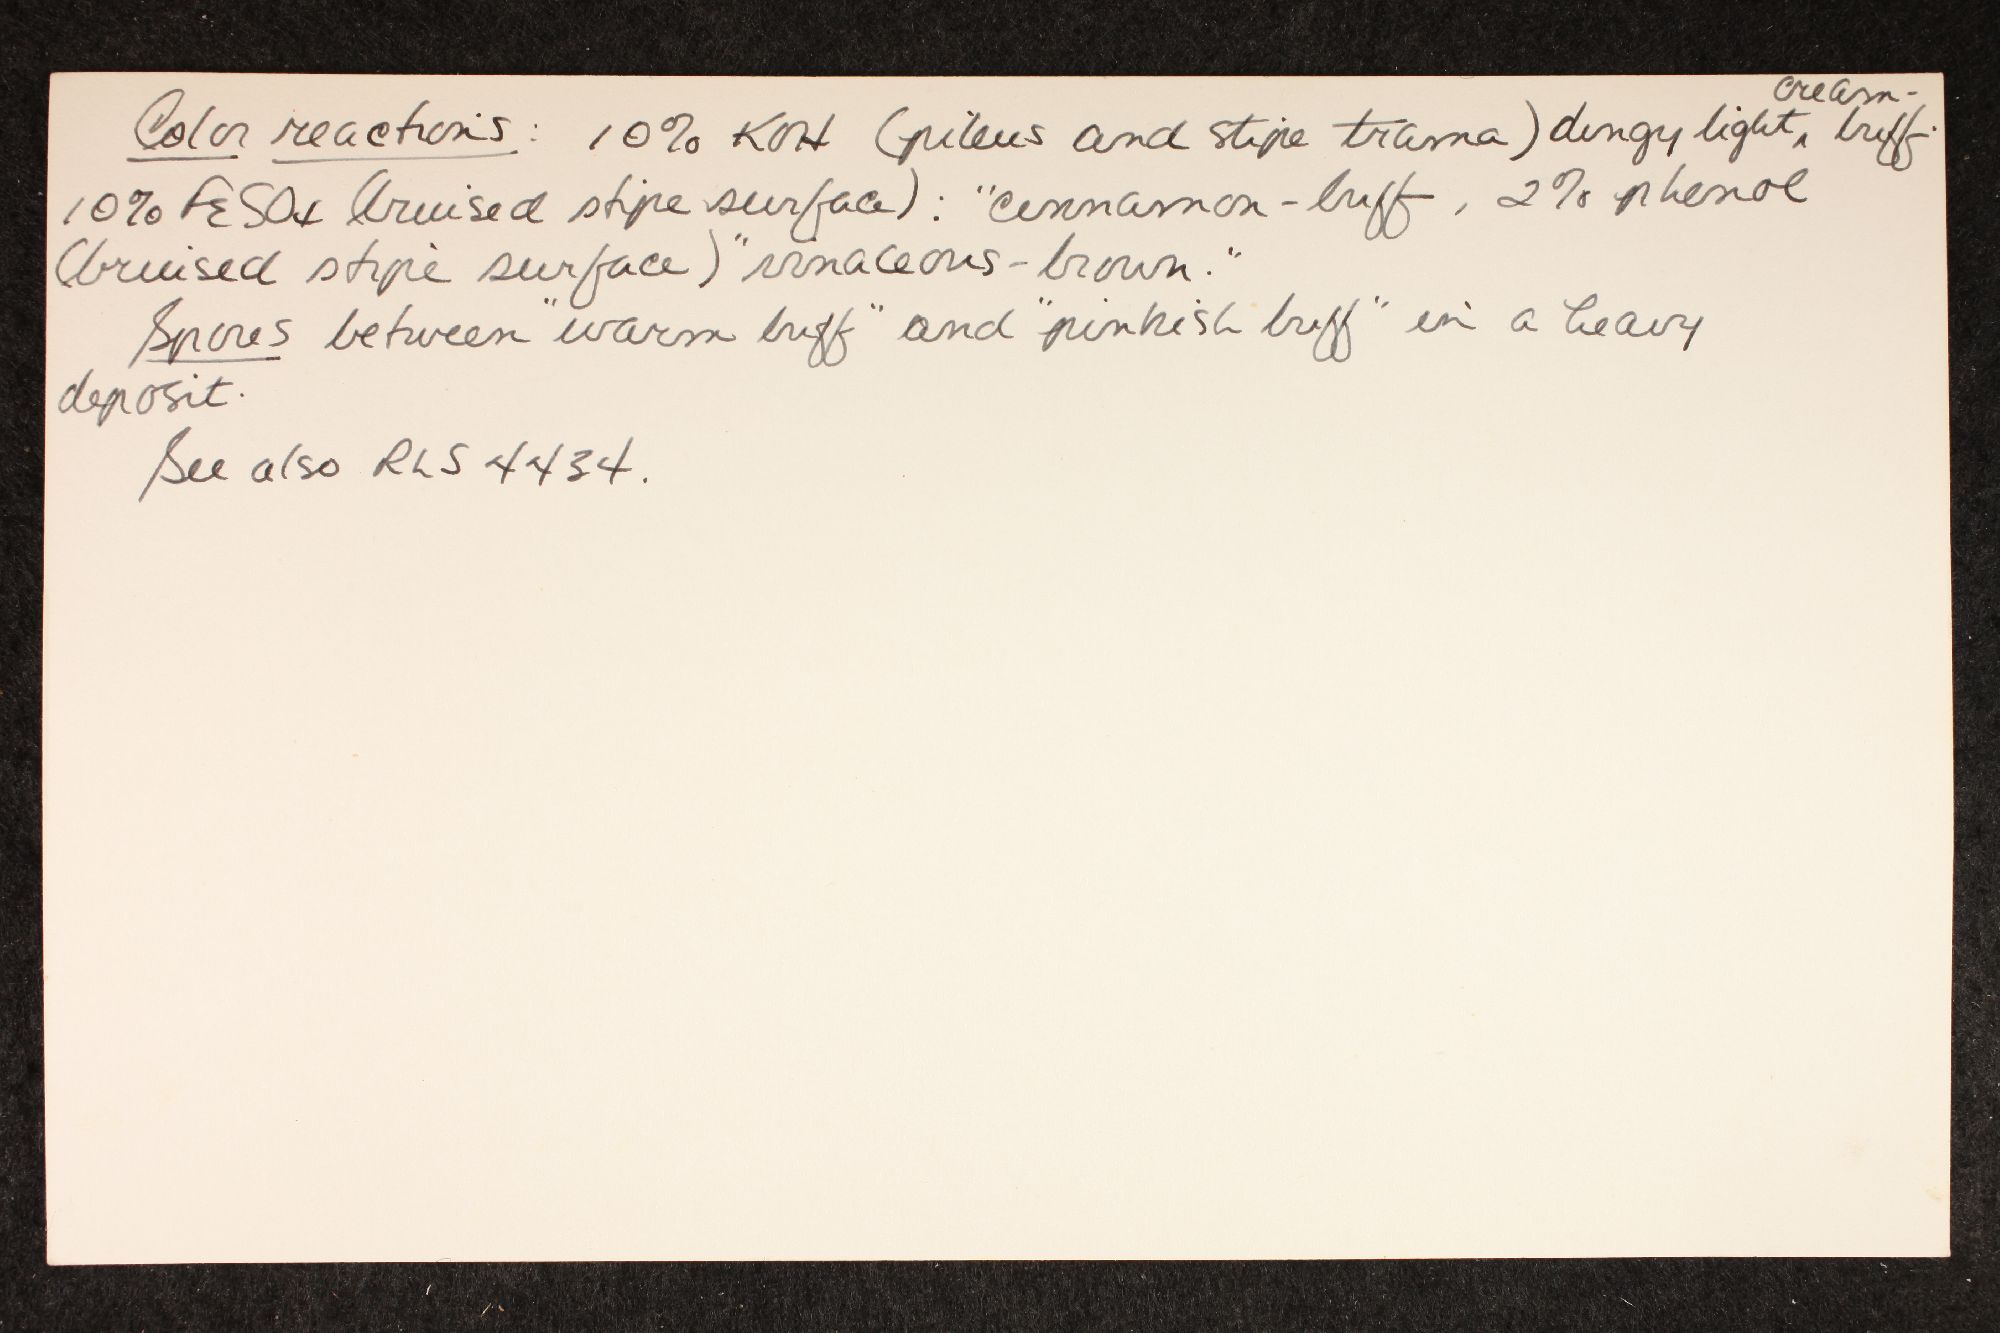 Color reactions: 10% KOH (pileus and stipe trama) dingy light ^ cream- buff.
10% FeSO4 (bruised stipe surface): "cinnamon-buff, 2% phenol
(bruised stipe surface) "vinaceous-brown."
Spores between "warm buff" and "pinkish buff" in a heavy
deposit.
See also RLS 4434.